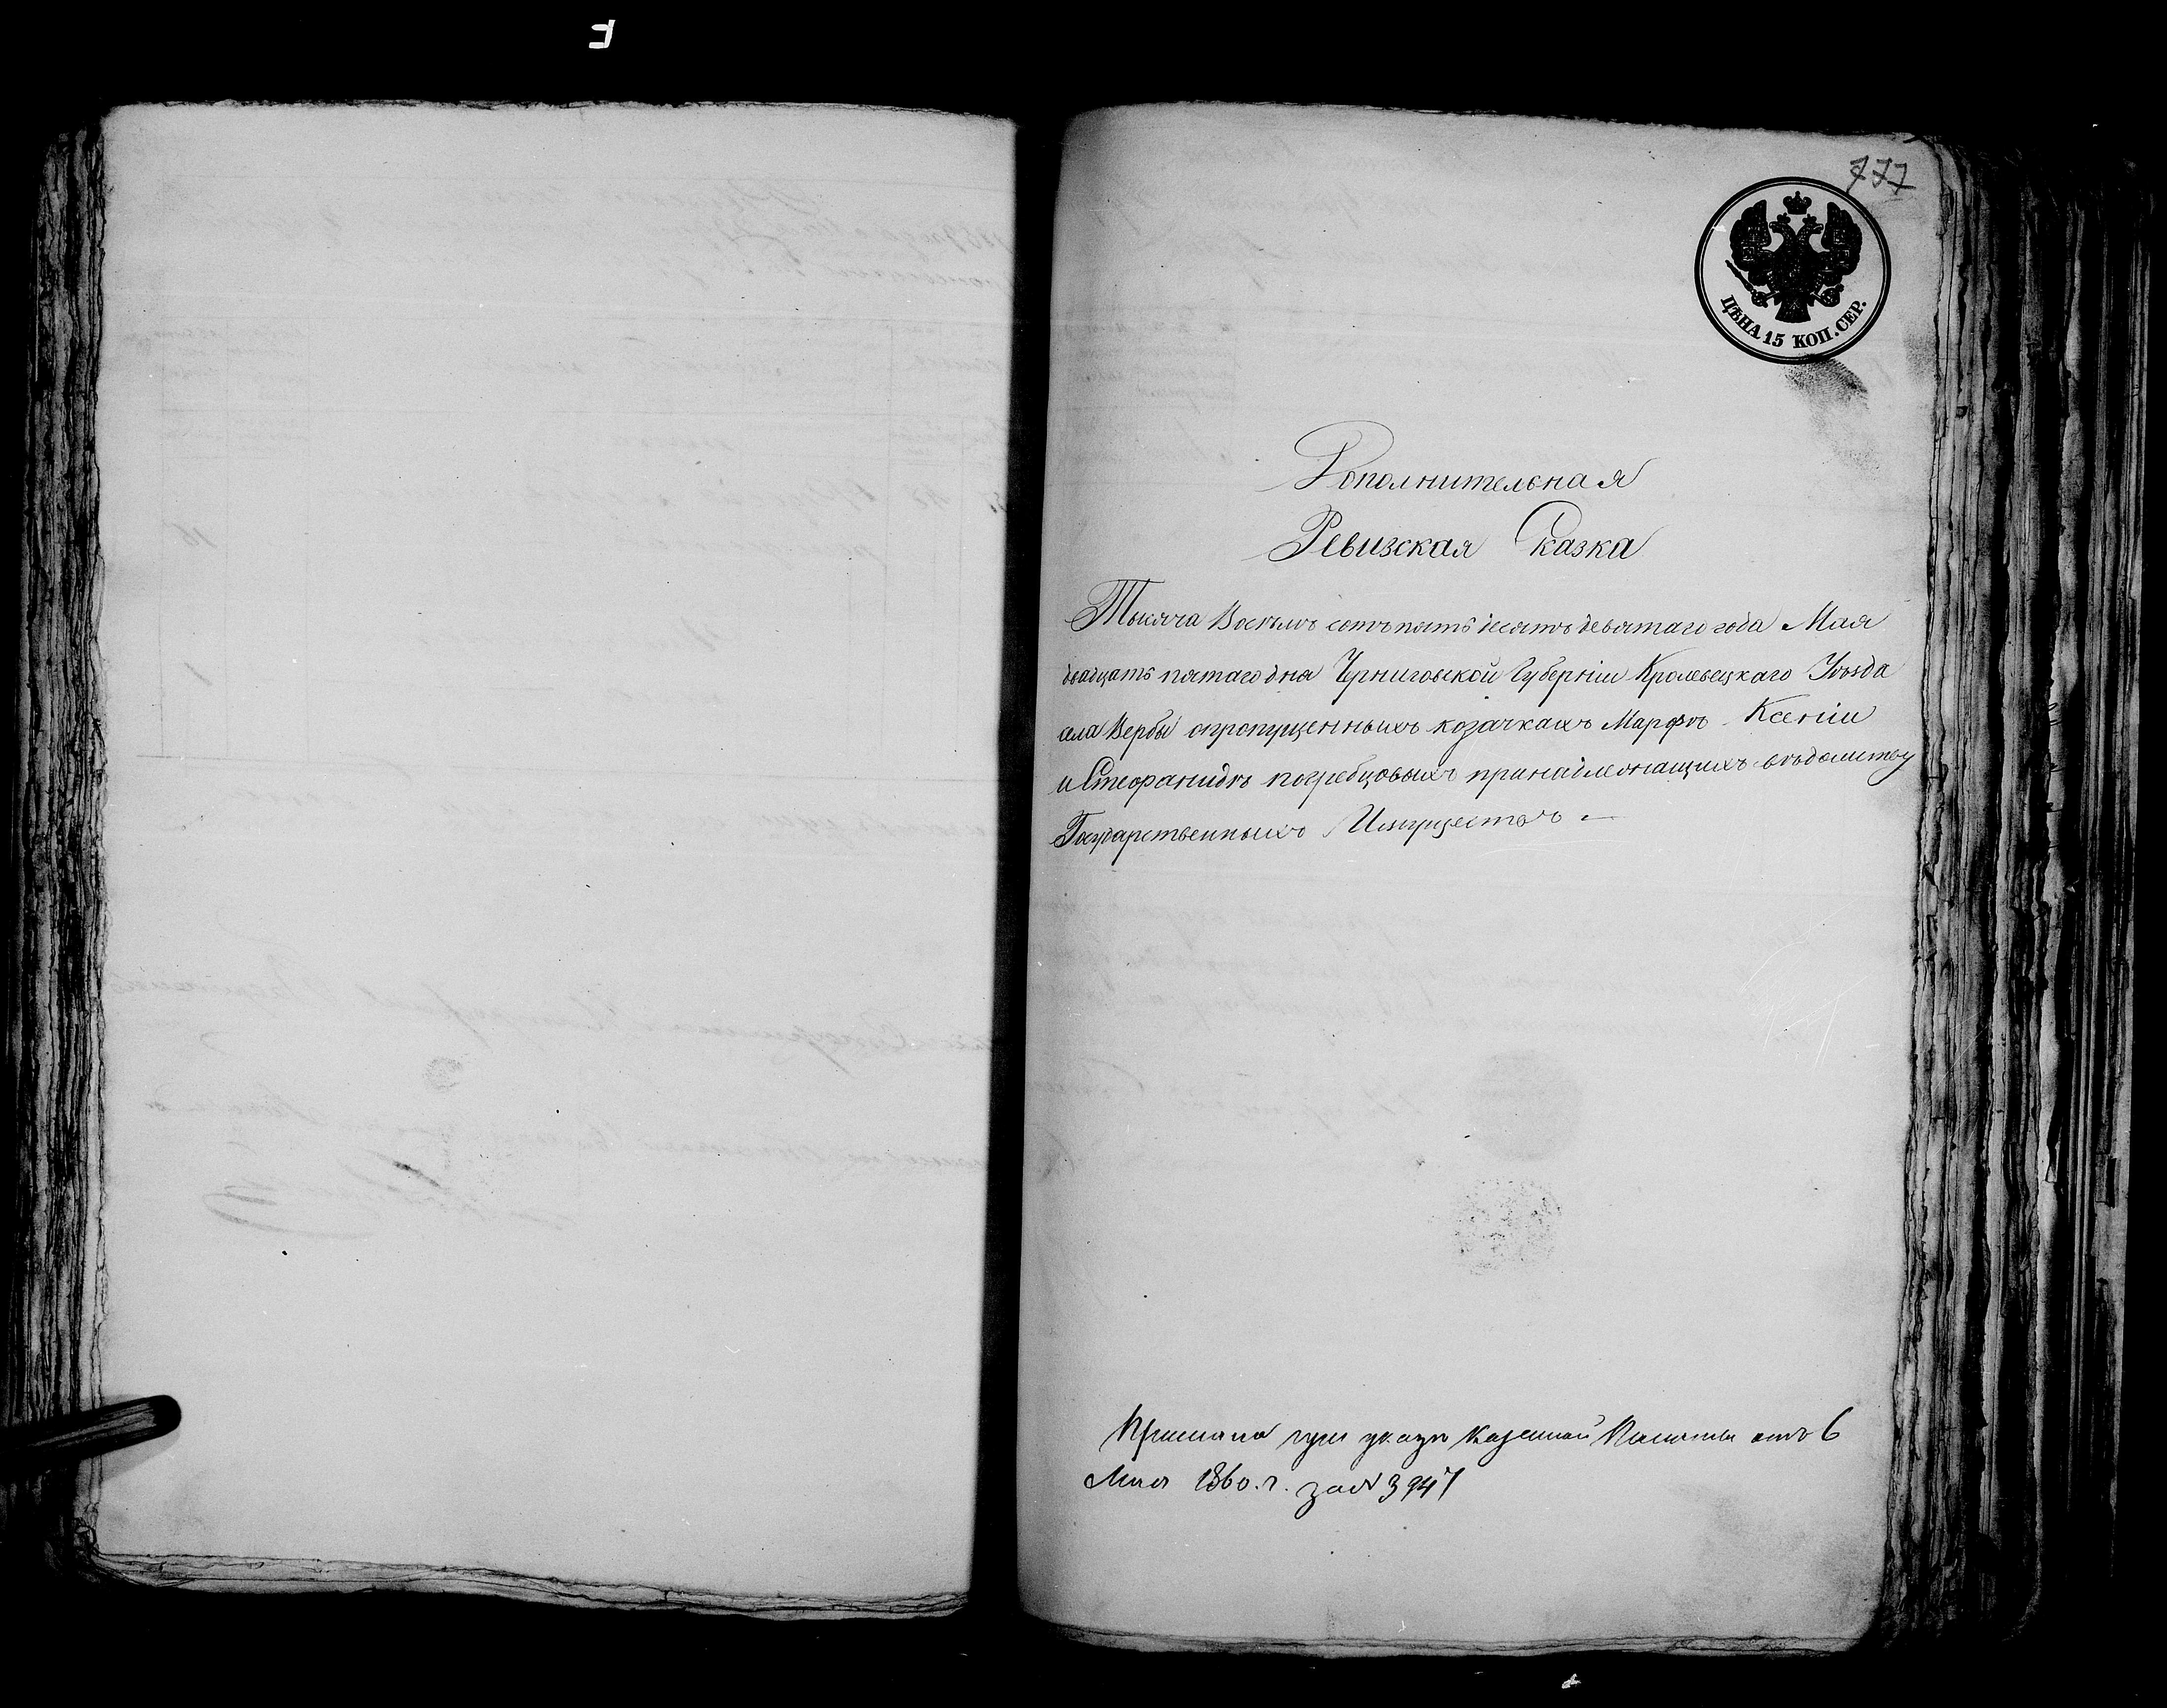 777
ЦѢНА 15 КОП. СЕР.
Дополнительная
Ревизская Сказка
Тысяча Восемь сотъ пятьдесятъ девятаго года Мая
двадцать пятаго дня Черниговской Губерніи Кролевецкаго Уѣзда
села Вербы о пропущенныхъ козачкахъ Марфѣ Ксеніи
и Стефанидѣ Погребцовыхъ принадлежащихъ вѣдомству
Государственныхъ Имуществъ —
при указѣ Казенной Палаты отъ 6
Мая 1860. г. за № 3947